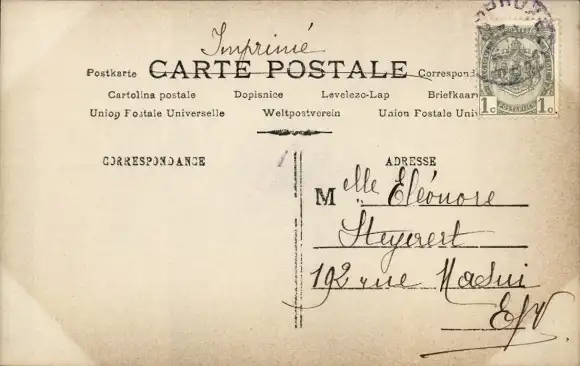 Imprimé
Postkarte CARTE POSTALE Correspond
Cartolina postale Dopisnice Levelezo-Lap Briefkaar
Union Postale Universelle Weltpostverein Union Postale Uni
1c 1c
CORRESPONDANCE
ADRESSE
Melle Eléonore
Steyaert
192 rue Masui
E/V